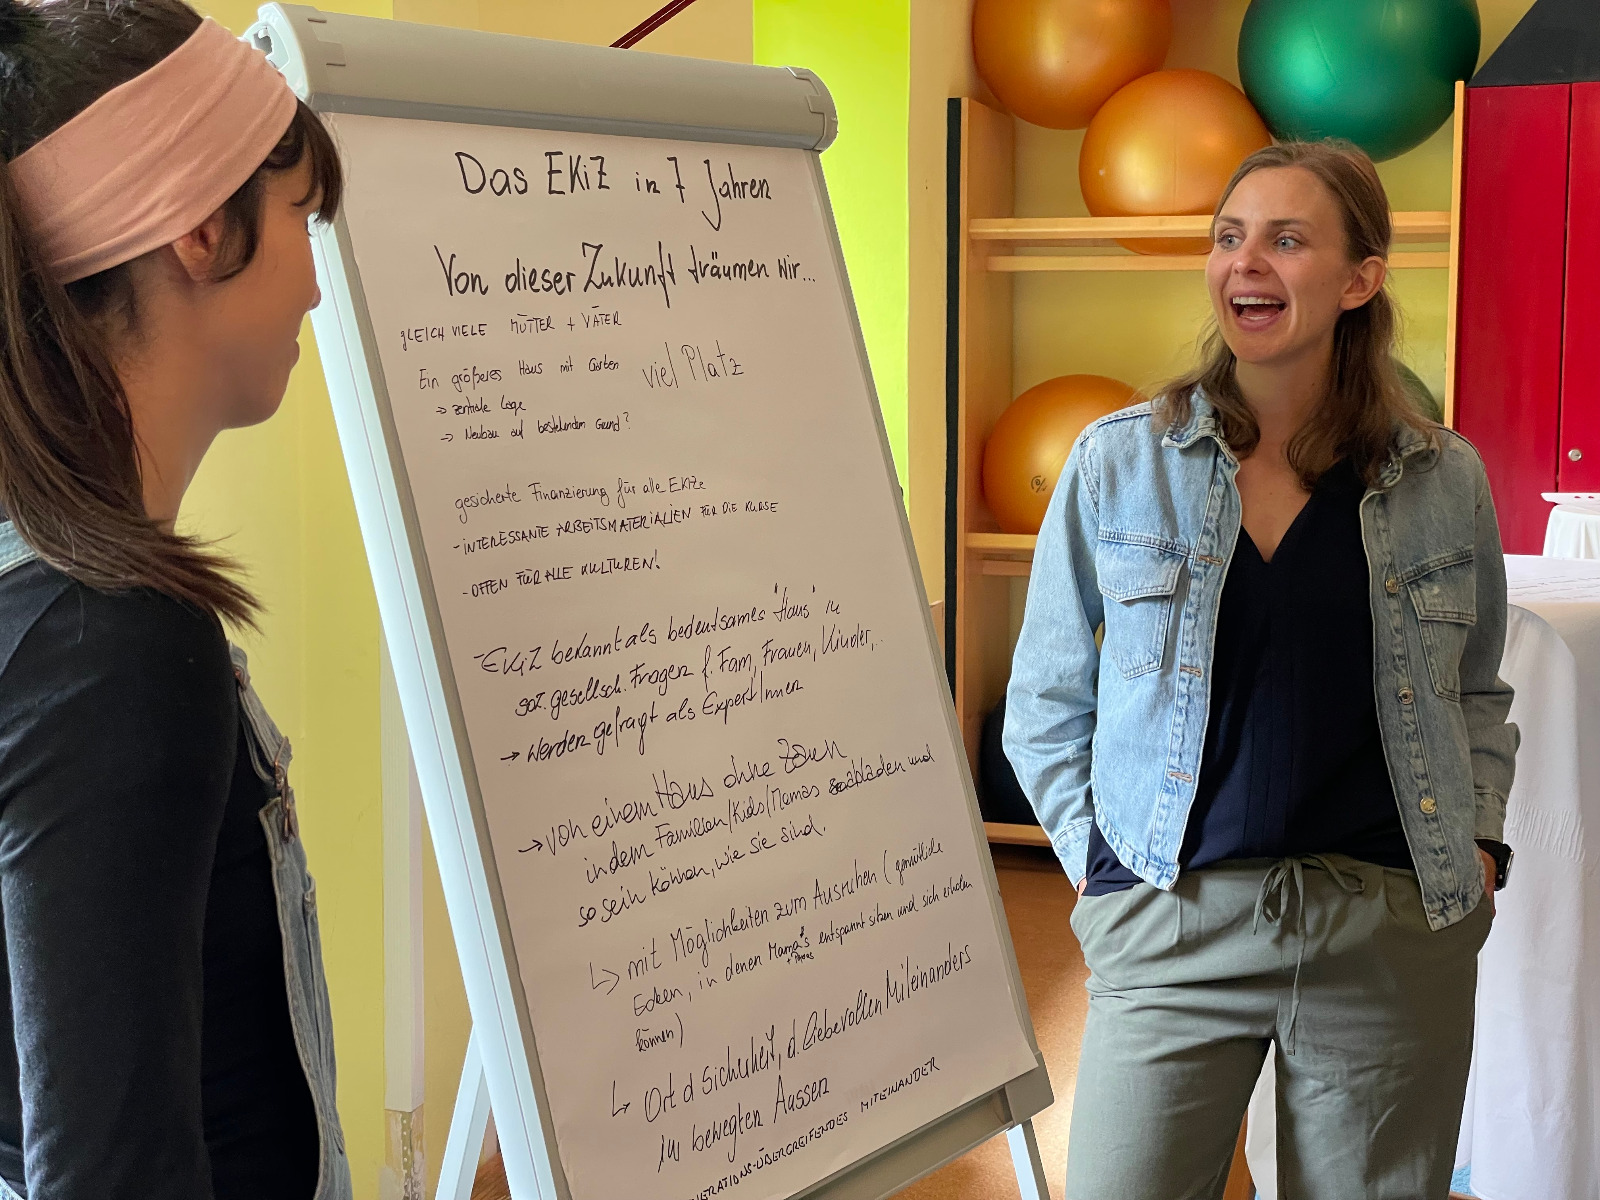 Das EKiZ in 7 Jahren
Von dieser Zukunft träumen wir...
GLEICH VIELE MÜTTER + VÄTER
Ein größeres Haus mit Garten
viel Platz
→ zentrale Lage
→ Neubau auf bestehendem Grund?
gesicherte Finanzierung für alle EKIZe
- INTERESSANTE ARBEITSMATERIALIEN FÜR DIE KURSE
- OFFEN FÜR ALLE KULTUREN!
- EKiZ bekannt als bedeutsames "Haus" in
soz. gesellsch. Fragen f. Fam, Frauen, Kinder,..
→ werden gefragt als ExpertInnen
→ von einem Haus ohne Zaun
in dem Familien/Kids/Mamas abladen und
so sein können, wie sie sind.
↳ mit Möglichkeiten zum Ausruhen (gemütliche
Ecken, in denen Mama's entspannt sitzen und sich erholen
+ Papas
können)
↳ Ort d Sicherheit, d. liebevollen Miteinanders
im bewegten Aussen
NERATIONS-ÜBERGREIFENDES MITEINANDER